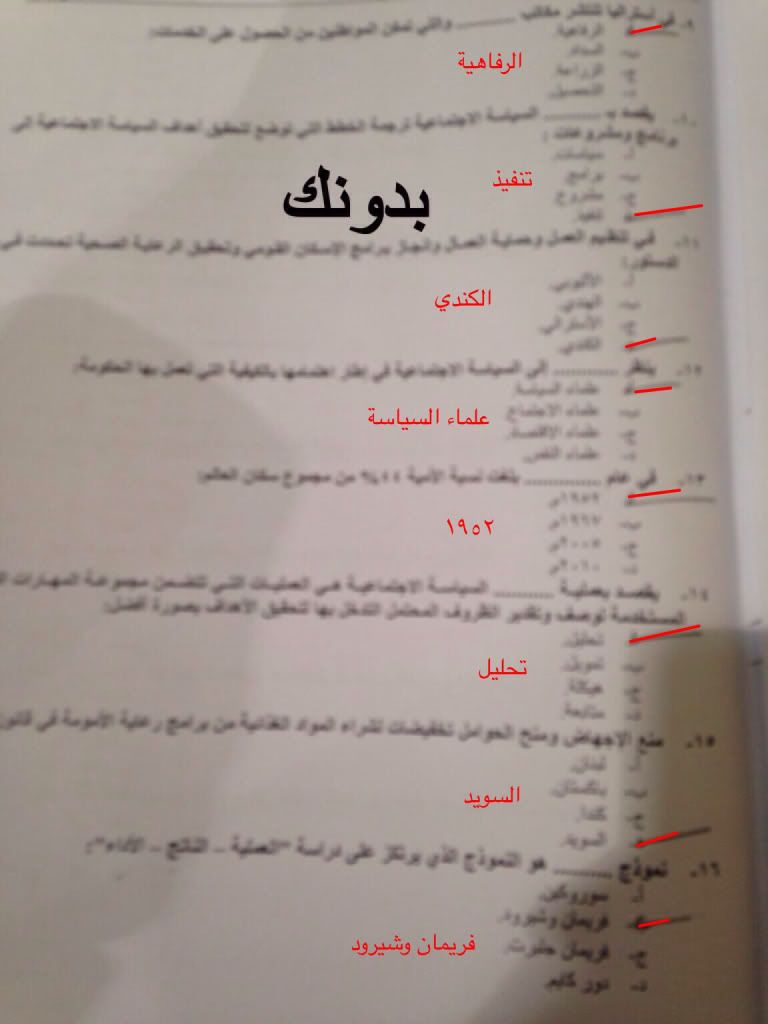 ٩- في أستراليا تنتشر مكاتب ........ والتي تمكن المواطنين من الحصول على الخدمات:
الرفاهية.
ب- السداد.
ج- الزراعة.
د- التحصيل.
الرفاهية
١٠- يقصد بـ ........ السياسة الاجتماعية ترجمة الخطط التي توضع لتحقيق أهداف السياسة الاجتماعية إلى
برنامج ومشروعات :
أ- سياسات.
ب- برامج.
ج- مشروع
تنفيذ.
تنفيذ
بدونك
١١- في تنظيم العمل وحماية العمال وإنجاز برامج الإسكان القومي وتحقيق الرعاية الصحية تحددت في
الدستور:
أ-
ب- الهندي.
ج- الأسترالي.
الكندي.
الكندي
١٢- ينظر ........ إلى السياسة الاجتماعية في إطار اهتمامها بالكيفية التي تعمل بها الحكومة:
علماء السياسة.
ب- علماء الاجتماع.
ج- علماء الاقتصاد.
د- علماء النفس.
علماء السياسة
١٣- في عام ........ بلغت نسبة الأمية ٤٤% من مجموع سكان العالم:
١٩٥٢م.
ب- ١٩٦٧م.
ج- ٢٠٠٥م.
د- ٢٠١٠م.
١٩٥٢
١٤- يقصد بعملية ........ السياسة الاجتماعية هي العمليات التي تتضمن مجموعة المهارات
المستخدمة لوصف وتقدير الظروف المحتمل التدخل بها لتحقيق الأهداف بصورة أفضل:
تحليل.
ب- تمويل.
ج- هيكلة.
د- متابعة.
تحليل
١٥- منع الإجهاض ومنح الحوامل تخفيضات لشراء المواد الغذائية من برامج رعاية الأمومة في قانون
أ- لبنان.
ب- باكستان.
ج- كندا.
السويد.
السويد
١٦- نموذج ........ هو النموذج الذي يرتكز على دراسة "العملية – الناتج – الأداء":
أ- سوروكين.
فريمان وشيرود.
ج- فريمان
د- دور كايم.
فريمان وشيرود